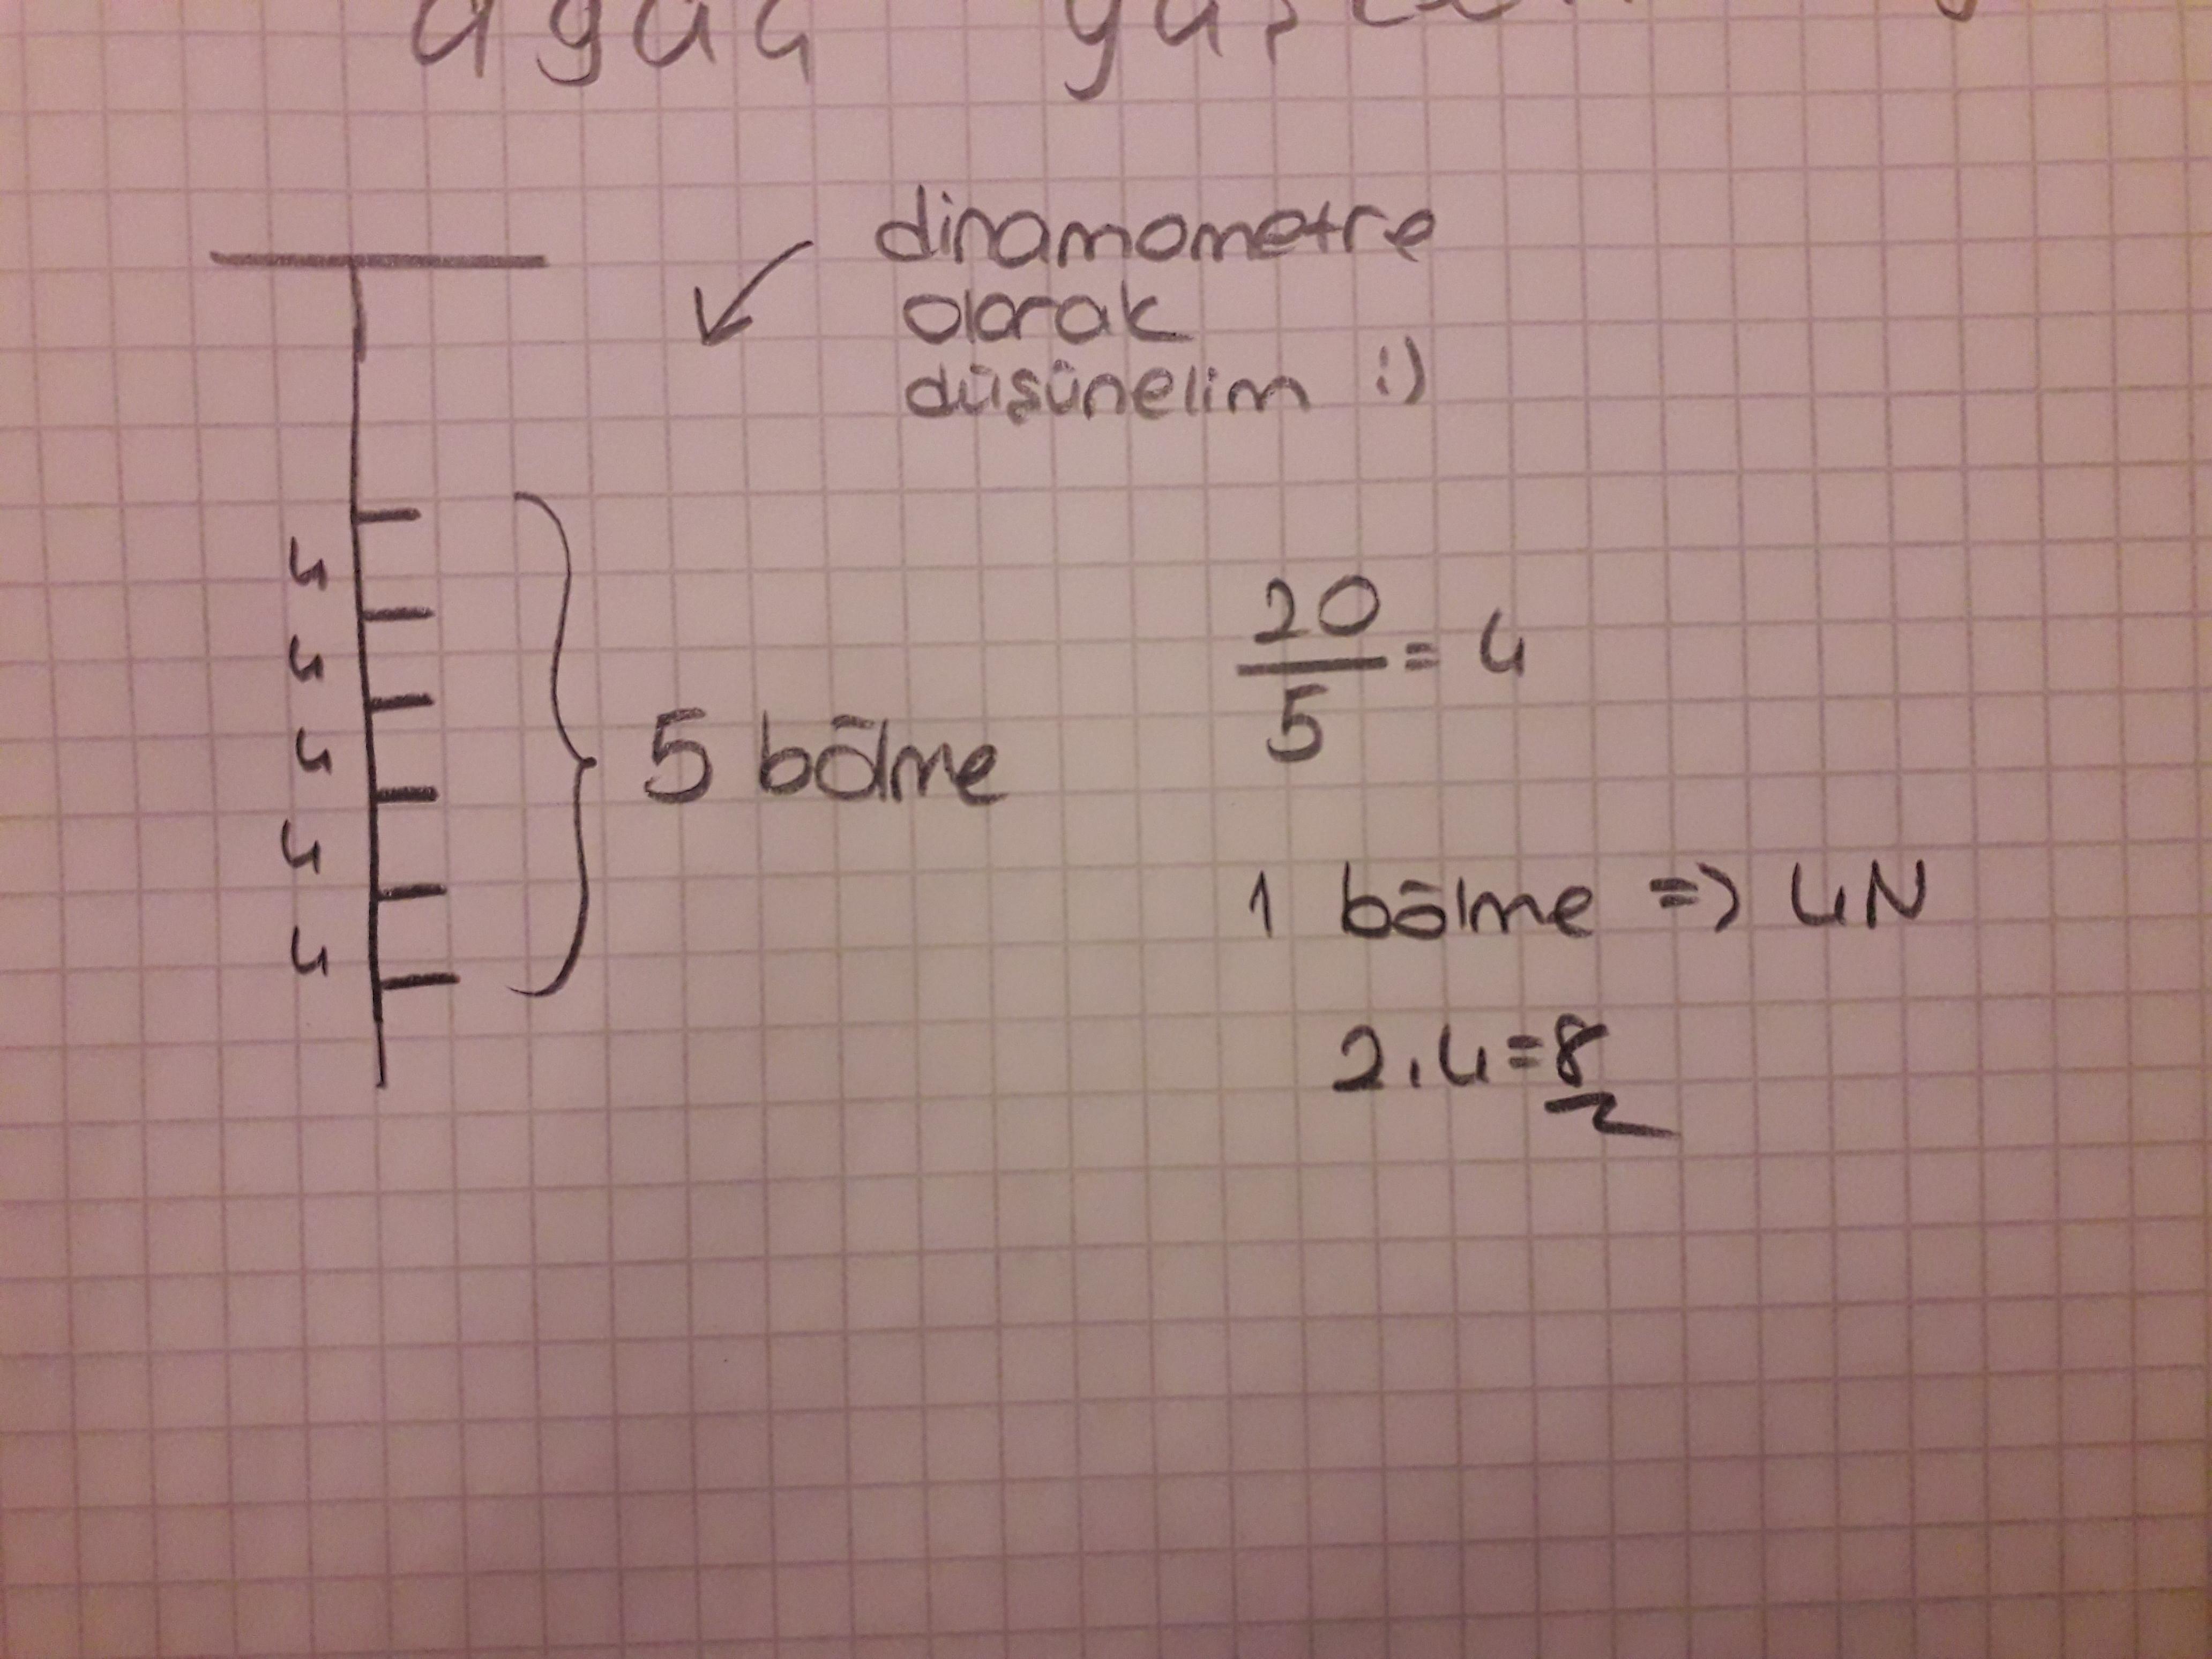 ağaç
dinamometre
olarak
düşünelim :)
4
4
4
4
4
5 bölme
20
5
= 4
1 bölme => 4N
2.4=8